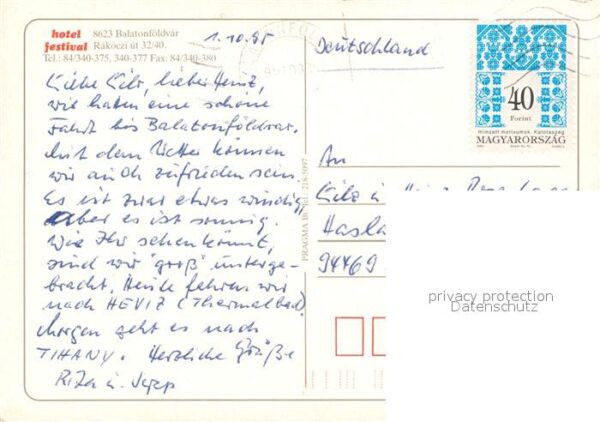 hotel festival
8623 Balatonföldvár
Rákóczi út 32/40.
Tel.: 84/340-375, 340-377 Fax: 84/340-380
1.10.95
Liebe Lilo, lieber Heinz,
wir haben eine schöne
Fahrt bis Balatonföldvar.
Mit dem Wetter können
wir auch zufrieden sein.
Es ist zwar etwas windig,
aber es ist sonnig.
Wie Ihr sehen könnt,
sind wir "groß" unterge-
bracht. Heute fahren wir
nach HEVIZ (Thermalbad).
Morgen geht es nach
TIHANY. Herzliche Grüße
Rita u. Sepp
PRAGMA Bt. Tel.: 218-5097
Deutschland
40
Forint
MAGYARORSZÁG
An
Lilo u. Heinz
Hasla
94469
privacy protection
Datenschutz